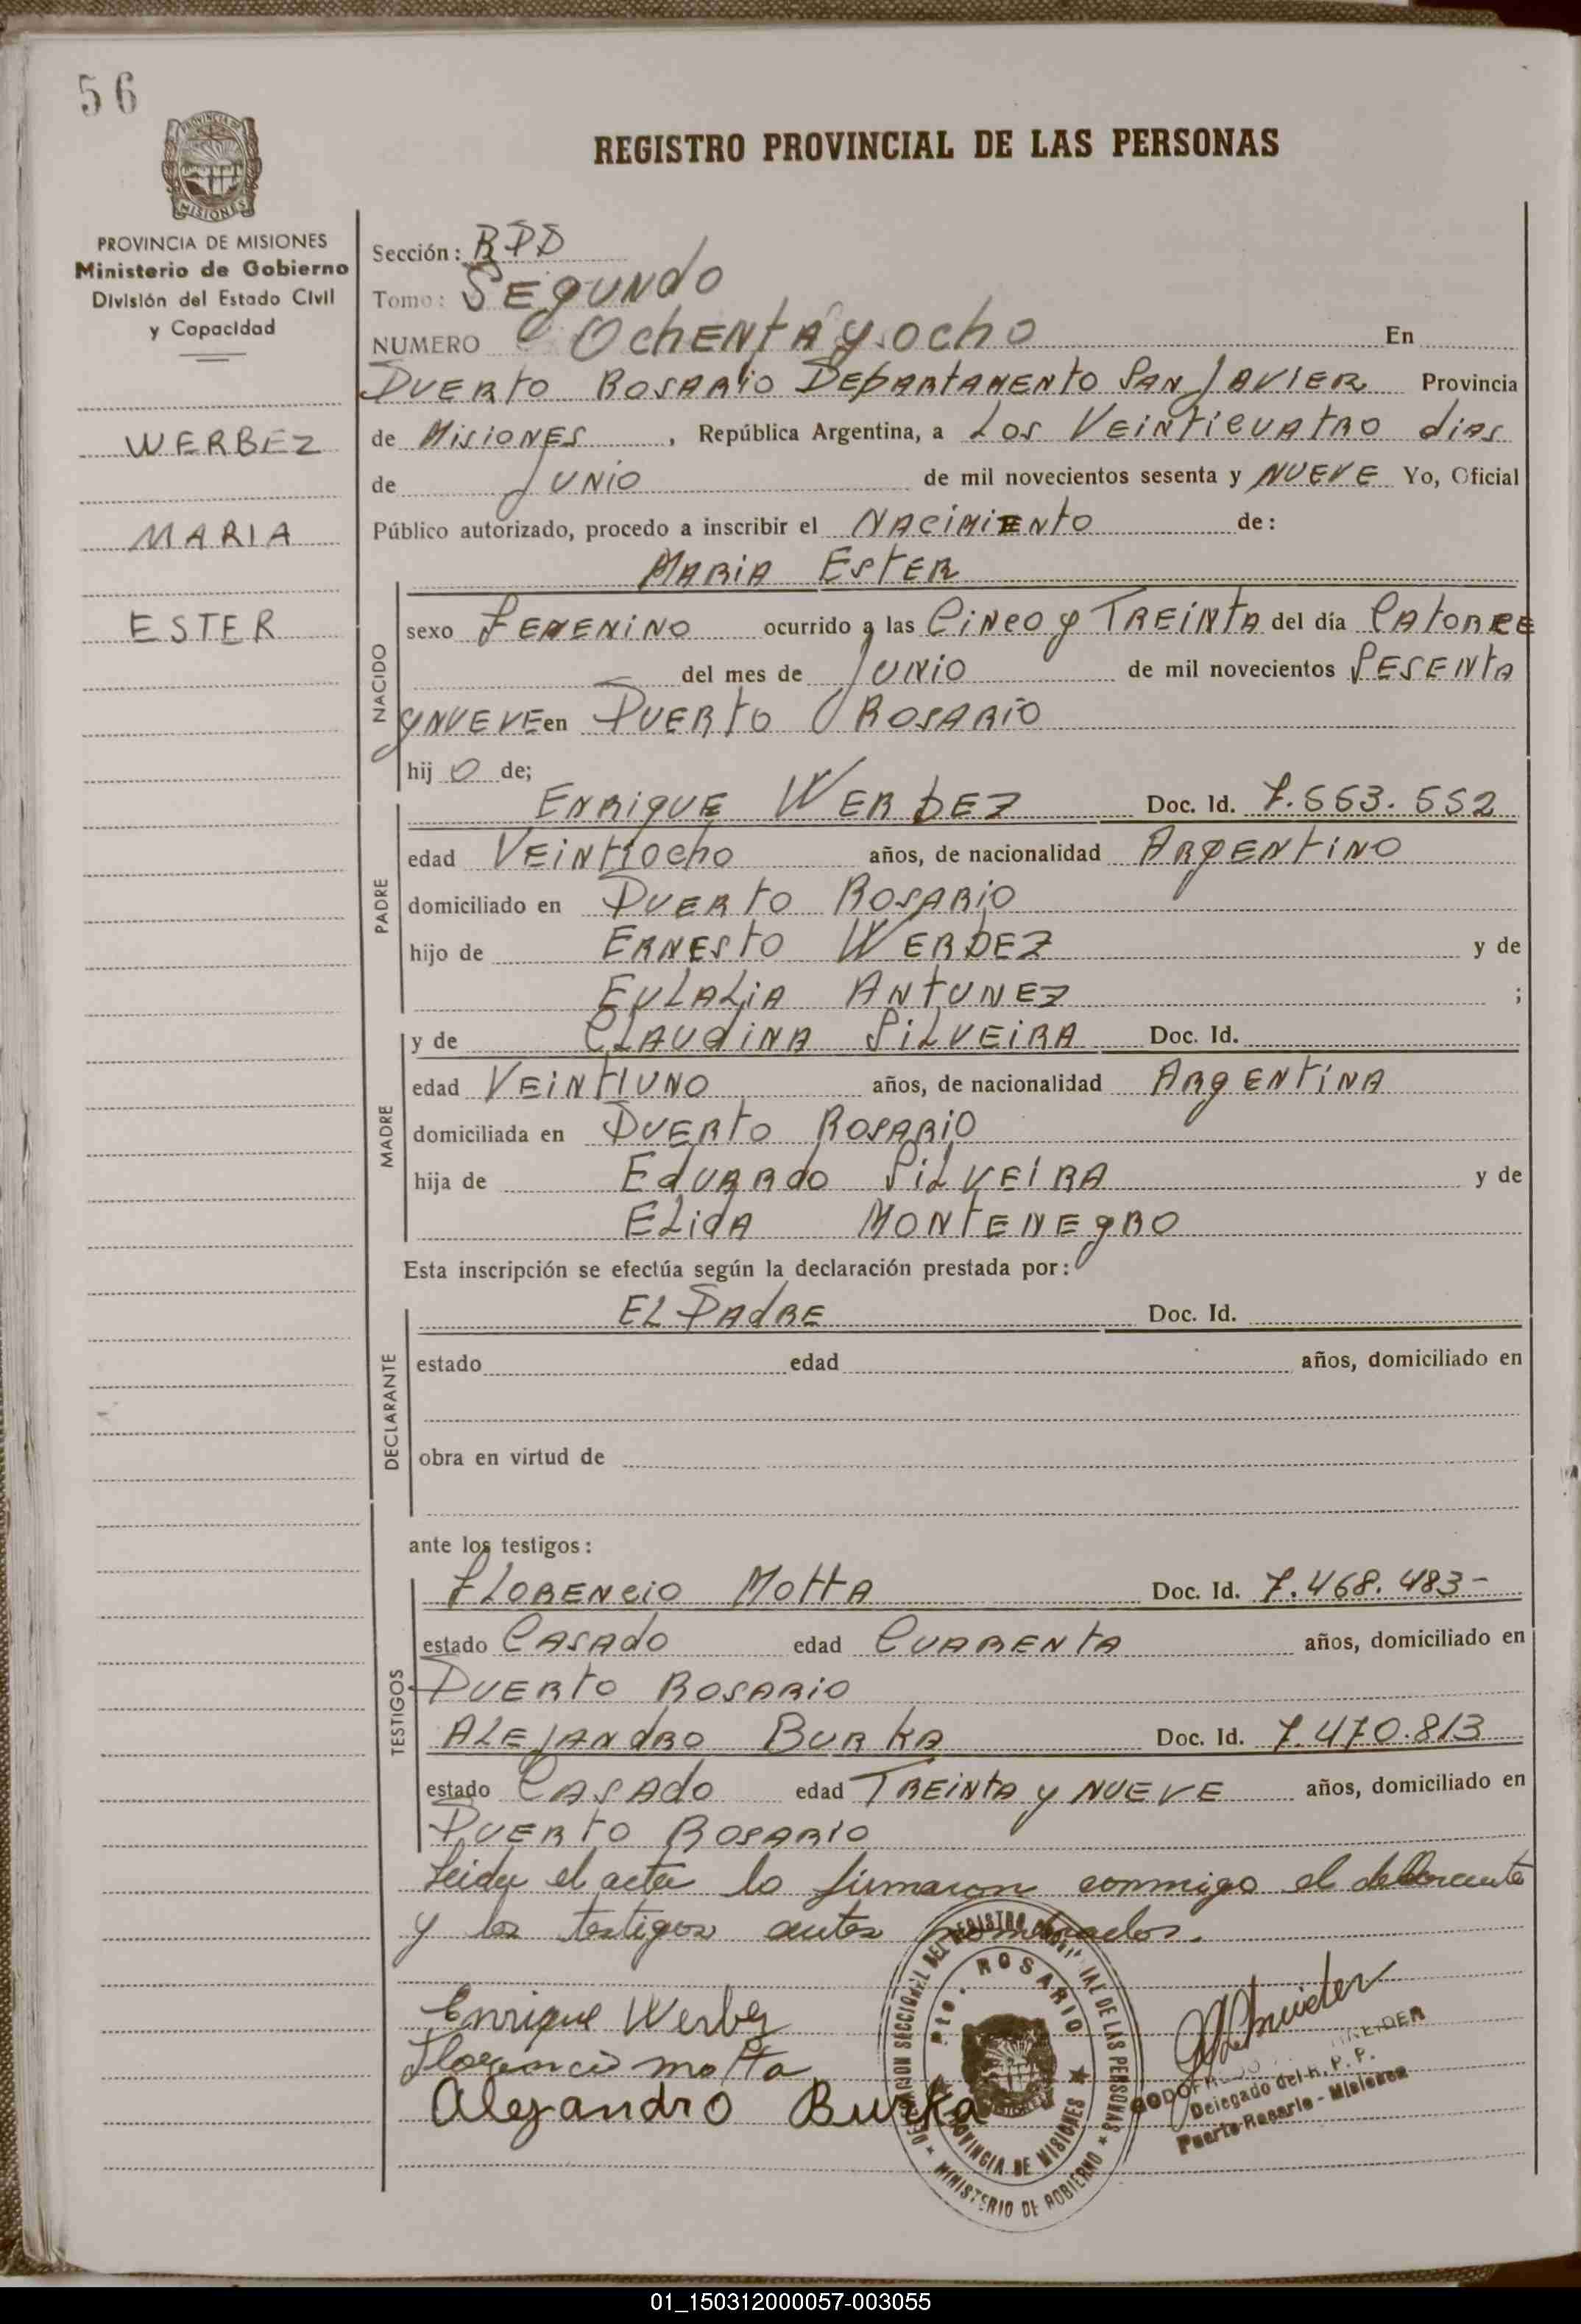 56
REGISTRO PROVINCIAL DE LAS PERSONAS
MISIONES
PROVINCIA DE MISIONES
Ministerio de Gobierno
División del Estado Civil
y Capacidad
WERBEZ
MARIA
ESTER
Sección:
Tomo: SEgUNdO
NUMERO OchENtA y ocho En
PUERtO ROSARIO DEpARtAMENtO SAN JAVIER Provincia
de MisiONES, República Argentina, a LOS VEiNtiCUAtRO dIAS
de JUNIO de mil novecientos sesenta y NUEVE Yo, Oficial
Público autorizado, procedo a inscribir el NACIMIENtO de:
MARIA ESTER
NACIDO
sexo FEMENINO ocurrido a las CiNCO y TREiNtA del día CAtORCE
del mes de JUNIO de mil novecientos SESENtA
y NUEVE en PUERtO ROSARIO
hij o de;
PADRE
ENRIqUE WERBEZ Doc. Id. 7.553.552
edad VEiNtiOchO años, de nacionalidad ARgENtiNO
domiciliado en PUERtO ROSARIO
hijo de ERNEStO WERBEZ y de
EULALiA ANtUNEZ ;
MADRE
y de CLAUdiNA SiLVEiRA Doc. Id.
edad VEiNtiUNO años, de nacionalidad ARgENtiNA
domiciliada en PUERtO ROSARIO
hija de EdUARdO SiLVEiRA y de
ELidA MONtENEgRO
Esta inscripción se efectúa según la declaración prestada por:
DECLARANTE
EL PAdRE Doc. Id.
estado edad años, domiciliado en
obra en virtud de
ante los testigos:
TESTIGOS
FLORENCIO MOttA Doc. Id. 7.468.483-
estado CASADO edad CUARENtA años, domiciliado en
PUERtO ROSARIO
ALEJANdRO BURKA Doc. Id. 7.470.813
estado CASAdO edad TREiNtA y NUEVE años, domiciliado en
PUERtO ROSARIO
Leida el acta lo firmaron conmigo el declarante
y los testigos antes nombrados.
Enrique Werbez
Florencio motta
Alejandro Burka
DELEGACION SECCIONAL DEL REGISTRO PROVINCIAL DE LAS PERSONAS
Pto. ROSARIO
PROVINCIA DE MISIONES
MINISTERIO DE GOBIERNO
Delegado del R. P. P.
Puerto Rosario - Misiones
01_150312000057-003055